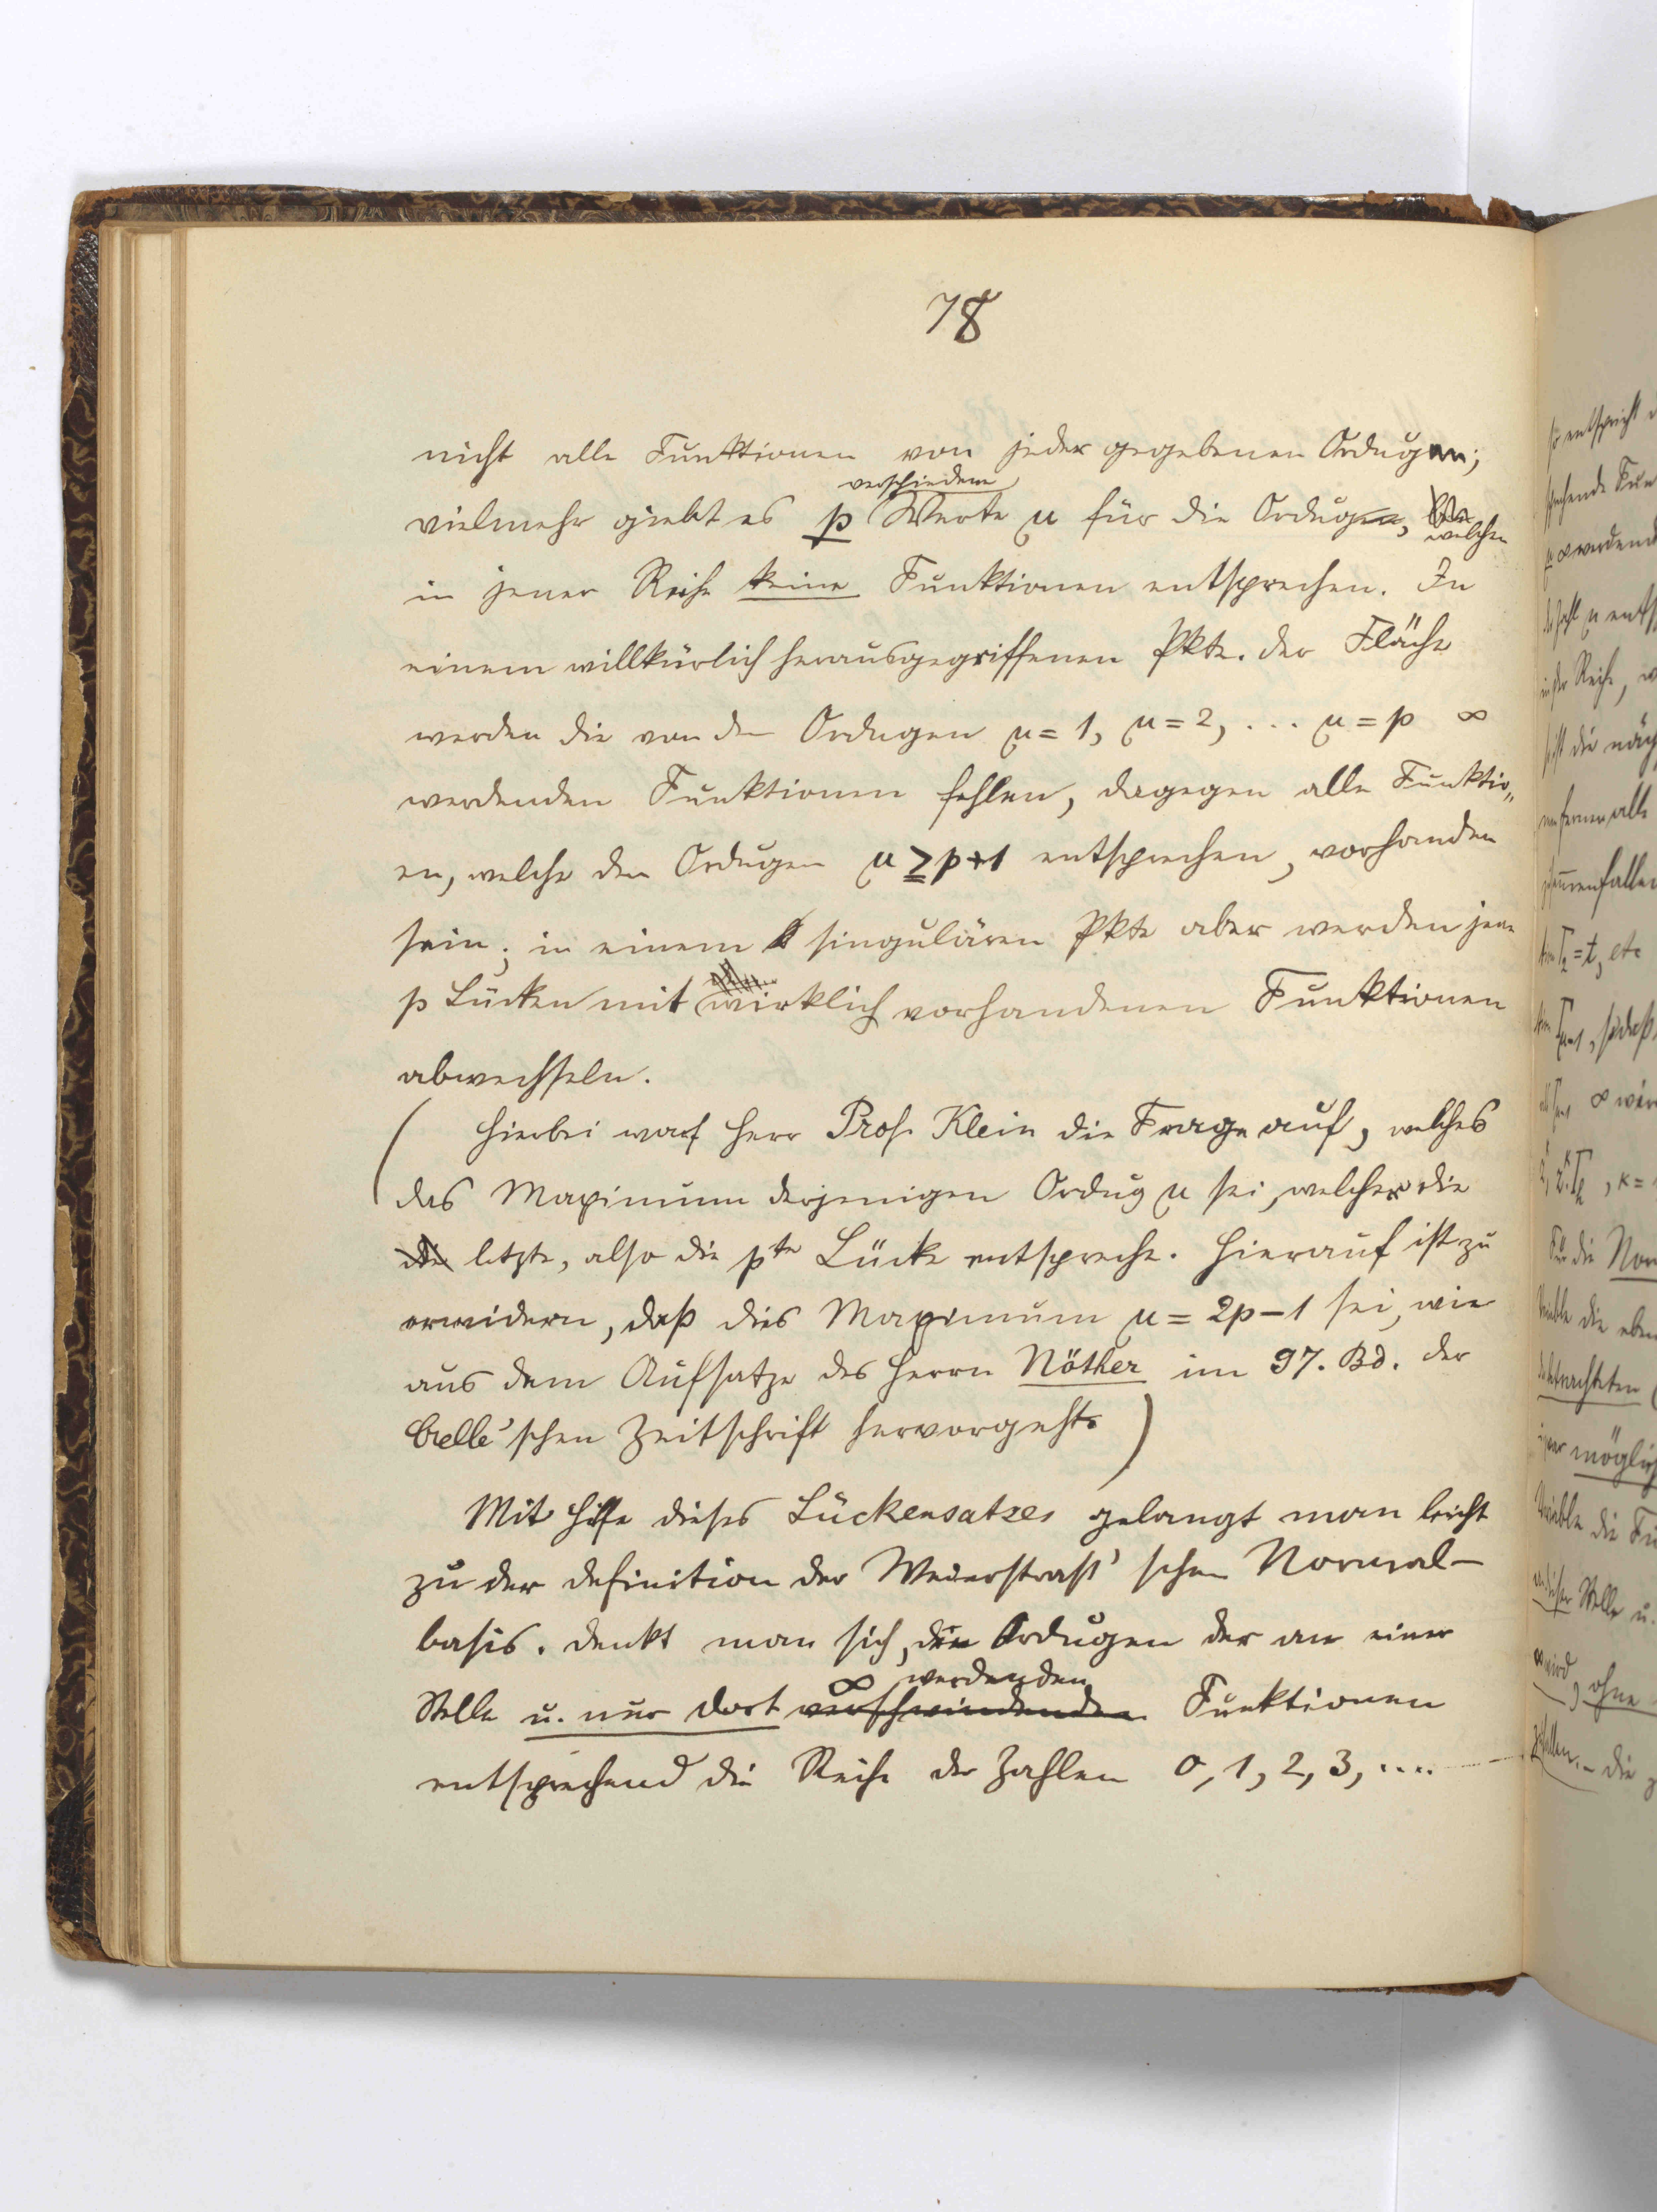 78
nicht alle Funktionen von jeder gegebenen Ordugen;
verschiedene
vielmehr giebt es p Werte μ für die Ordugen, welchen
in jener Reihe keine Funktionen entsprechen. In
einem willkürlich herausgegriffenen Pkte. der Fläche
werden die von den Ordugen μ = 1, μ = 2, ... μ = p ∞
werdenden Funktionen fehlen, dagegen alle Funktio„
en, welche den Ordugen μ ≧ p+1 entsprechen, vorhanden
sein; in einem singulären Pkte aber werden jene
p Lücken mit wirklich vorhandenen Funktionen
abwechseln.
( Hierbei warf Herr Prof. Klein die Frage auf, welches
das Maximum derjenigen Ordug μ sei, welcher die
die letzte, also die pte Lücke entspreche. Hierauf ist zu
erwidern, daß dies Maximum μ = 2p-1 sei, wie
aus dem Aufsatze des Herrn Nöther im 97. Bd. der
Crelle'schen Zeitschrift hervorgeht. )
Mit Hilfe dieses Lückensatzes gelangt man leicht
zu der Definition der Weierstraß'schen Normal-
basis. Denkt man sich, die Ordugen der an einer
∞ werdenden
Stelle u. nur dort verschwindenden Funktionen
entsprechend die Reihe der Zahlen 0, 1, 2, 3, ....
so entspricht
die Nor
möglich
Stelle u.
wird, ohne